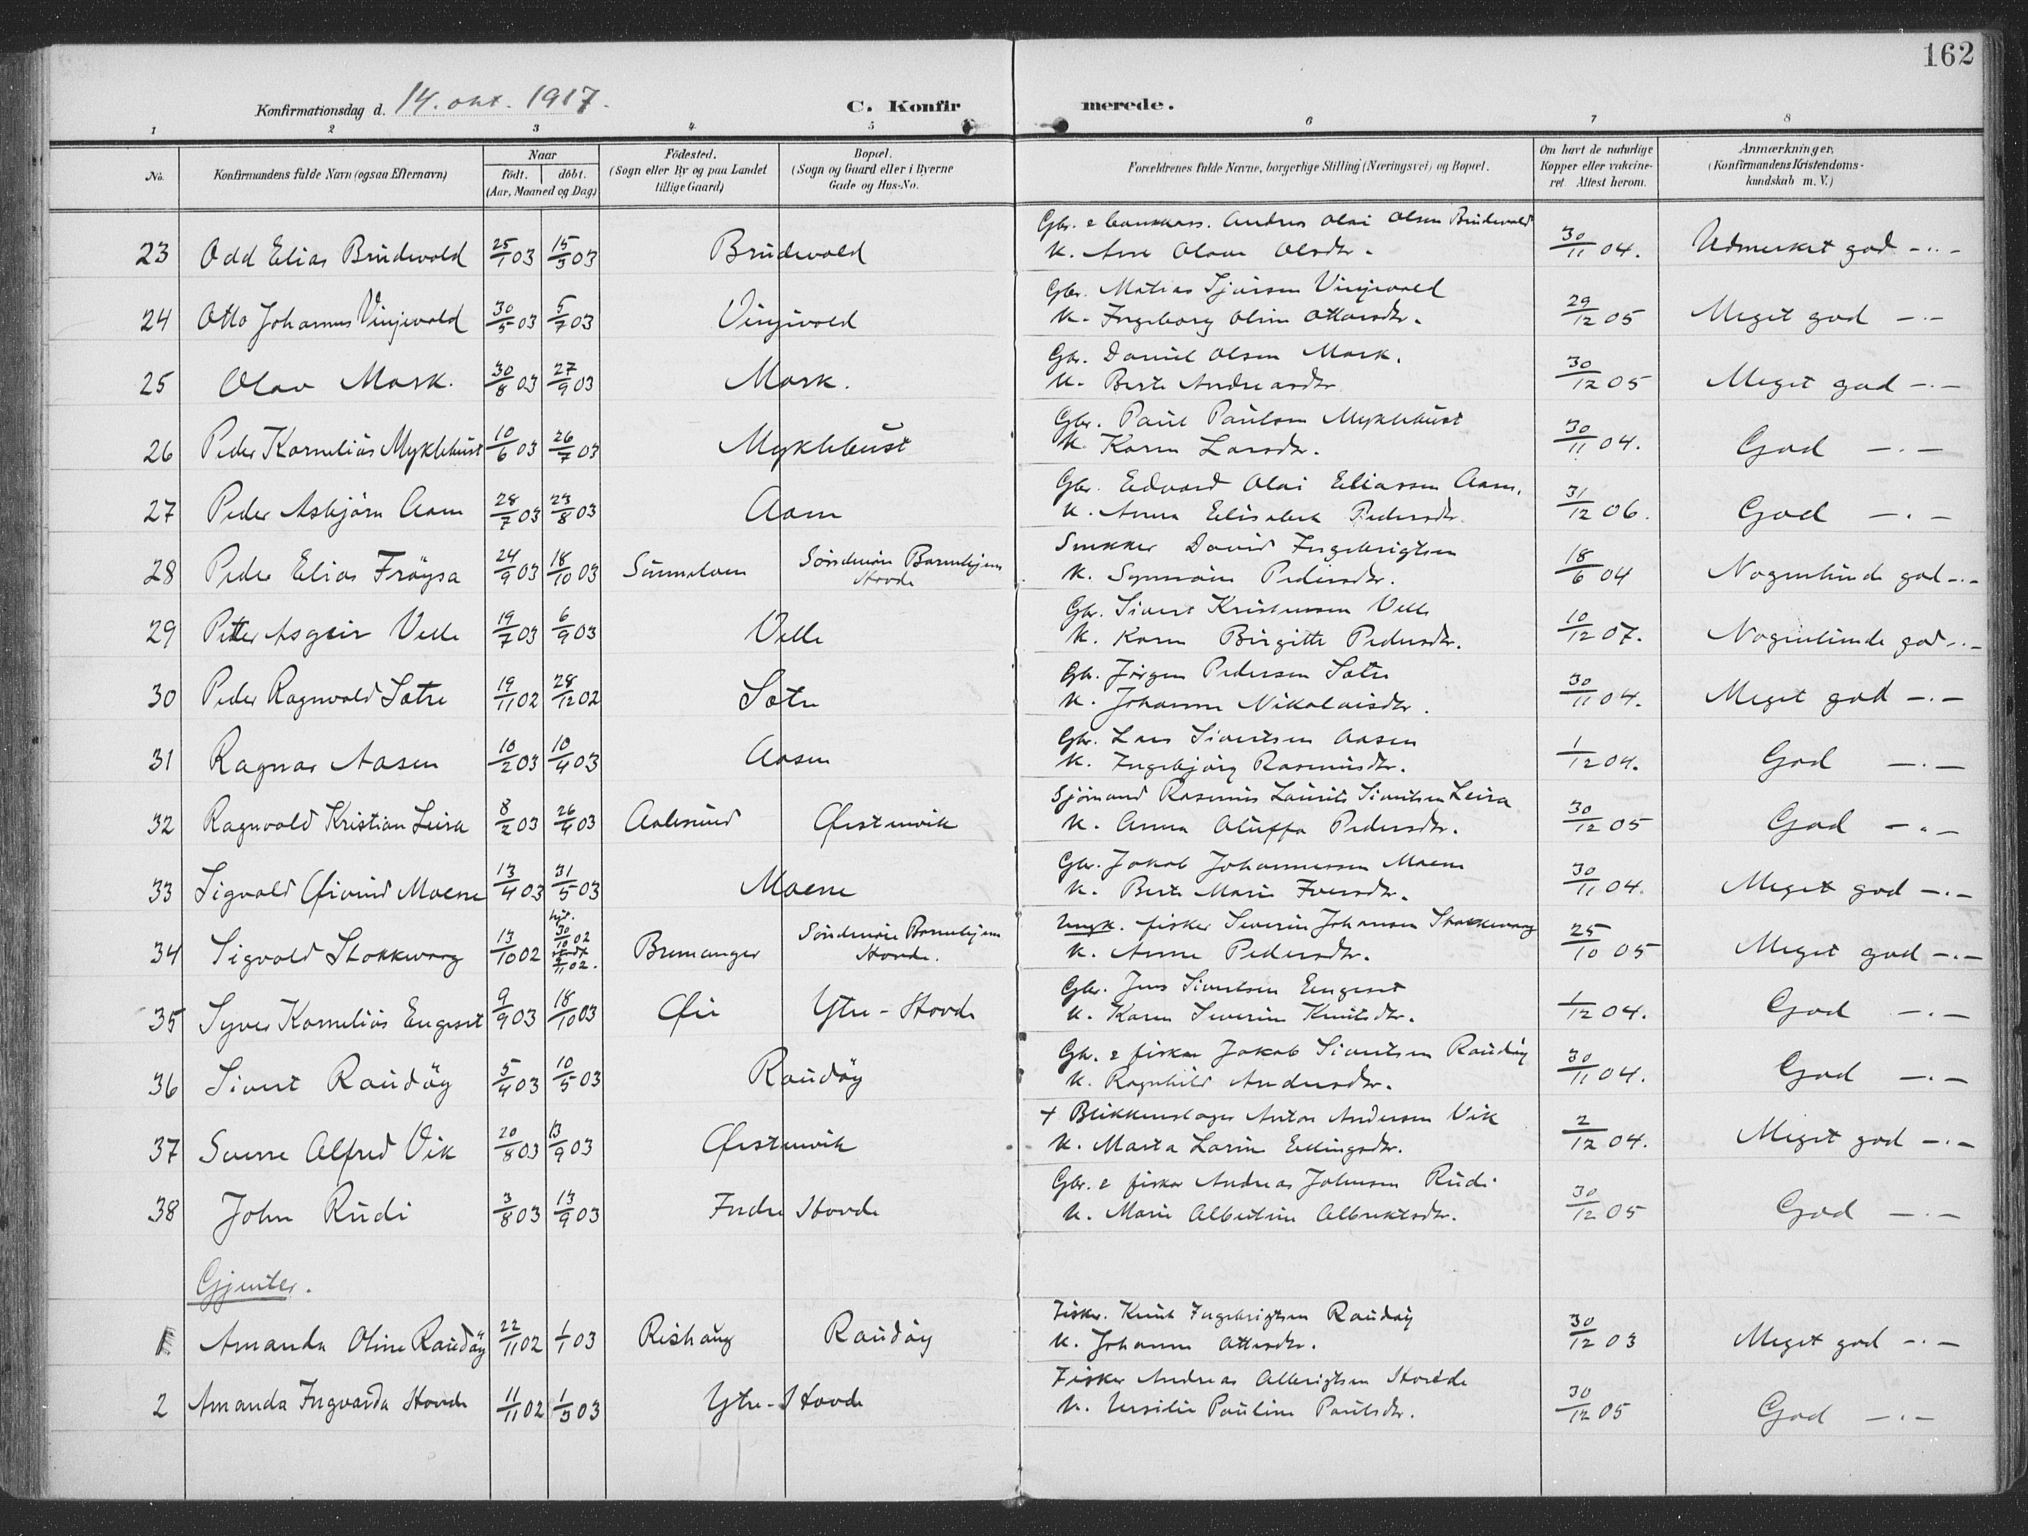 162
Konfirmationsdag d. 14. okt. 1917.
C. Konfirmerede.
1 2 3 4 5 6 7 8
No.
Konfirmandens fulde Navn (ogsaa Efternavn)
Naar
födt. döbt.
(Aar, Maaned og Dag)
Födested.
(Sogn eller By og paa Landet
tillige Gaard)
Bopæl.
(Sogn og Gaard eller i Byerne
Gade og Hus-No.
Forældrenes fulde Navne, borgerlige Stilling (Næringsvei) og Bopæl.
Om havt de naturlige
Kopper eller vakcine-
ret. Attest herom.
Anmærkninger,
(Konfirmandens Kristendoms-
kundskab m. V.)
23 Odd Elias Brudevold 25/1 03 15/3 03 Brudevold
Gbr. & Andreas Olai Olsen Brudevold
K. Ane Olave Olsdtr. 30/11 04. Udmerket god -"-
24 Otto Johannes Vinjevold 30/5 03 5/7 03 Vinjevold
Gbr. Matias Sjursen Vinjevold
K. Ingeborg Oline Ottarsdtr. 29/12 05 Meget god -"-
25 Olav Mork. 30/8 03 27/9 03 Mork.
Gbr. Daniel Olsen Mork.
K. Berte Andreasdtr. 30/12 05 Meget god -"-
26 Peder Kornelius Myklebust 10/6 03 26/7 03 Myklebust
Gbr. Paul Paulsen Myklebust
K. Karen Larsdtr. 30/11 04. God -"-
27 Peder Asbjørn Aam 28/7 03 23/8 03 Aam
Gbr. Edvard Olai Eliassen Aam.
K. Anna Elisabet Pedersdtr. 31/12 06. God -"-
28 Peder Elias Frøysa 24/9 03 18/10 03 Sunnelven Søndmøre Barnehjem Hovde
Snekker David Ingebrigtsen
K. Synnøve Pedersdtr. 18/6 04 Nogenlunde god -"-
29 Petter Asgeir Velle 19/7 03 6/9 03 Velle
Gbr. Sivert Kristensen Velle
K. Karen Birgitte Pedersdtr. 10/12 07. Nogenlunde god -"-
30 Peder Ragnvald Sætre 19/11 02 28/12 02 Sætre
Gbr. Jørgen Pedersen Sætre
K. Johanne Nikolaisdtr. 30/11 04. Meget god -"-
31 Ragnar Aasen 10/2 03 10/4 03 Aasen
Gbr. Lars Sivertsen Aasen
K. Ingebjørg Rasmusdtr. 1/12 04. God -"-
32 Ragnvald Kristian Leira 8/2 03 26/4 03 Aalesund Ørstenvik
Sjømand Rasmus Laurits Sivertsen Leira
K. Anna Oluffa Pedersdtr. 30/12 05 God -"-
33 Sigvald Øivind Moene 13/4 03 31/5 03 Moene
Gbr. Jakob Johannessen Moene
K. Berte Marie Iversdtr. 30/11 04. Meget god -"-
34 Sigvald Stokkevaag 13/10 02 hjd. 30/10 02 2/11 02. Bremanger Søndmøre Barnehjem Hovde.
Ungk. fisker Severin Johansen Stokkevaag
K. Anne Pedersdtr. 25/10 05 Meget god -"-
35 Syver Kornelius Engeset 9/9 03 18/10 03 Øie Ytre-Hovde
Gbr. Jens Sivertsen Engeset
K. Karen Severine Knutsdtr. 1/12 04. God -"-
36 Sivert Raudøy 5/4 03 10/5 03 Raudøy
Gbr. & fisker Jakob Sivertsen Raudøy
K. Ragnhild Andersdtr. 30/11 04. God -"-
37 Sverre Alfred Vik 20/8 03 13/9 03 Ørstenvik
+ Blikkenslager Anton Andersen Vik
K. Marta Larine Ellingsdtr. 2/12 04. Meget god -"-
38 John Rudi 3/8 03 13/9 03 Indre Hovde
Gbr. & fisker Andreas Johnsen Rudi
K. Marie Albertine Albrektsdtr. 30/12 05 God -"-
Gjenter.
1 Amanda Oline Raudøy 22/11 02 1/1 03 Rishaug Raudøy
Fisker. Knut Ingebrigtsen Raudøy
K. Johanne Ottersdtr. 30/12 03 Meget god -"-
2 Amanda Ingvarda Hovde 11/11 02 1/3 03 Ytre-Hovde
Fisker Andreas Albrigtsen Hovde
K. Ursilie Pauline Paulsdtr. 30/12 05 God -"-